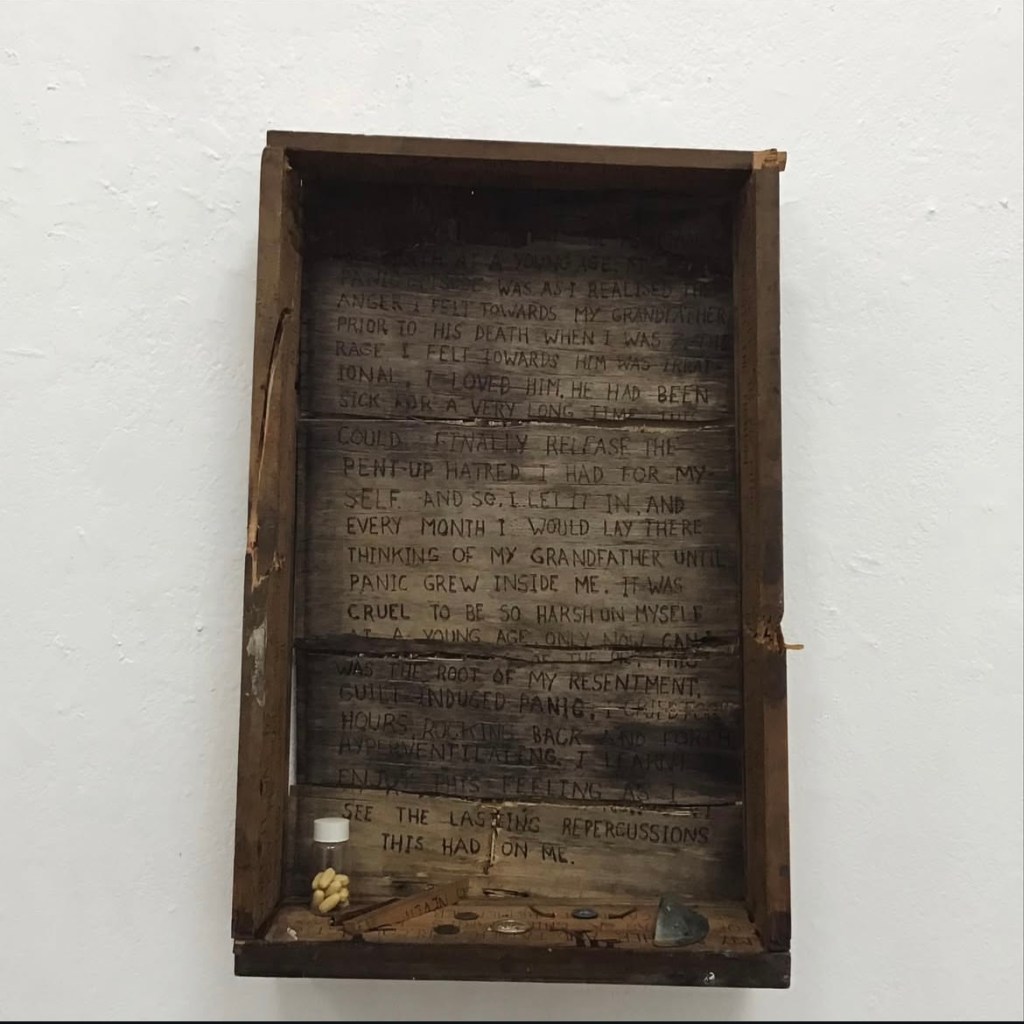 AT A YOUNG AGE.
PANIC WAS AS I REALISED THE
ANGER I FELT TOWARDS MY GRANDFATHER
PRIOR TO HIS DEATH WHEN I WAS THE
RAGE I FELT TOWARDS HIM WAS IRRAT-
IONAL. I LOVED HIM. HE HAD BEEN
SICK FOR A VERY LONG TIME
COULD FINALLY RELEASE THE
PENT-UP HATRED I HAD FOR MY-
SELF AND SO, I LET IT IN, AND
EVERY MONTH I WOULD LAY THERE
THINKING OF MY GRANDFATHER UNTIL
PANIC GREW INSIDE ME. IT WAS
CRUEL TO BE SO HARSH ON MYSELF
AT A YOUNG AGE. ONLY NOW CAN
WAS THE ROOT OF MY RESENTMENT,
GUILT INDUCED PANIC. I
HOURS, ROCKING BACK AND FORTH
HYPERVENTILATING. I
ENJOY THIS FEELING AS I
SEE THE LASTING REPERCUSSIONS
THIS HAD ON ME.